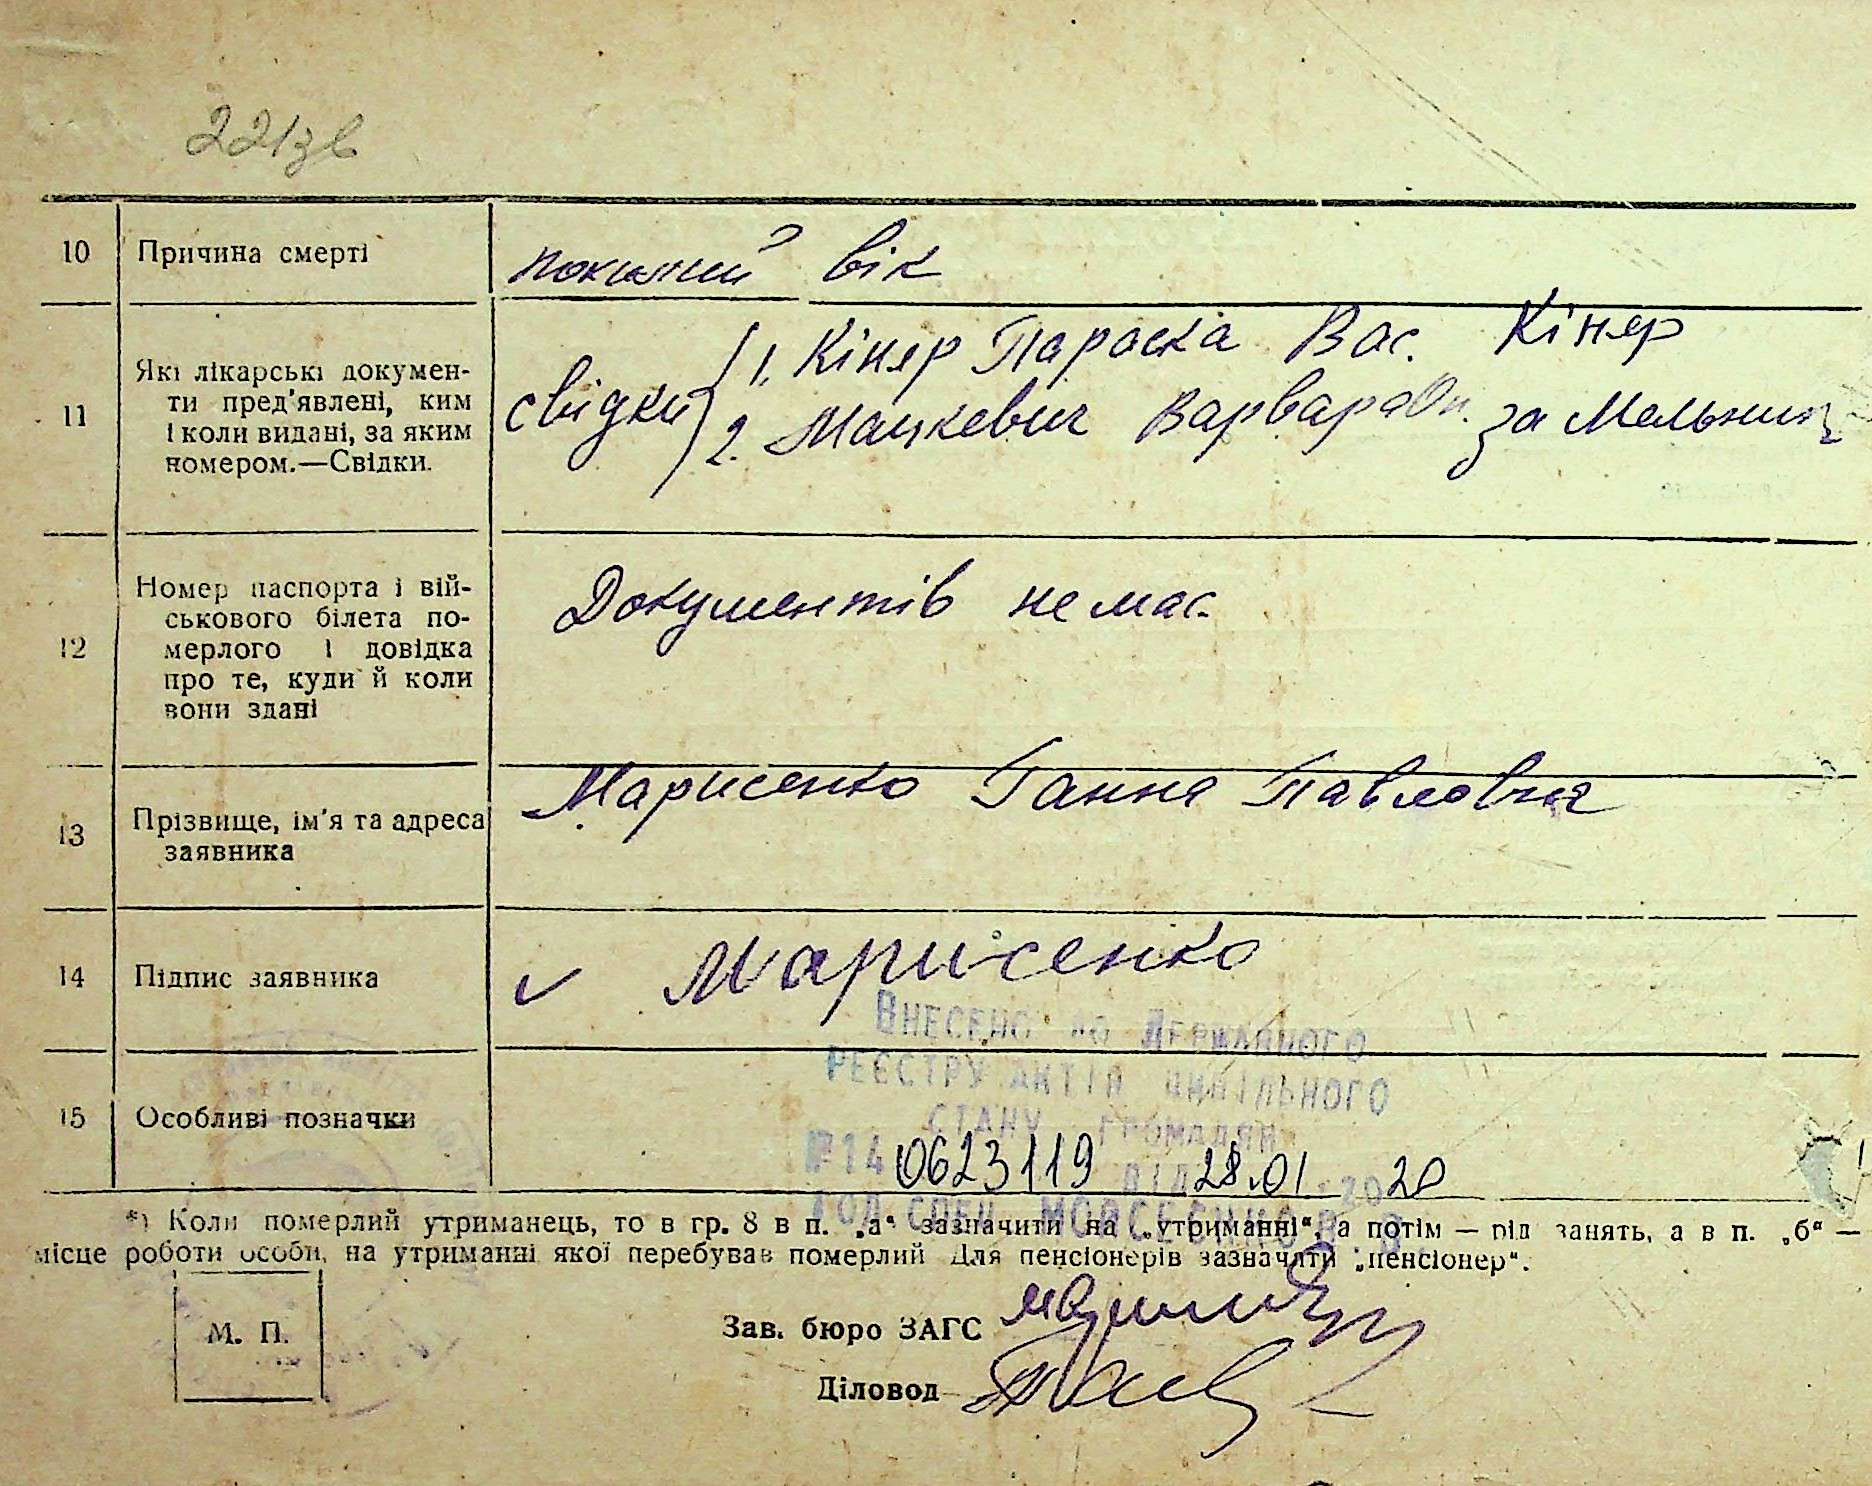 221зв
10 Причина смерті похилий вік
11 Які лікарські докумен-
ти пред'явлені, ким
і коли видані, за яким
номером.—Свідки.
свідки
1. Кіняр Параска Вас. Кіняр
2. Мацкевич Варвара за Мельник
12 Номер паспорта і вій-
ськового білета по-
мерлого і довідка
про те, куди й коли
вони здані
Документів немає
13 Прізвище, ім'я та адреса
заявника
Марисенко Ганна Павловна
14 Підпис заявника
Марисенко
Внесено до Державного
реєстру актів цивільного
стану громадян
15 Особливі позначки
№14 0623119 від 28.01.2020
*) Коли померлий утриманець, то в гр. 8 в п. „а“ зазначити на „утриманні“, а потім — рід занять, а в п. „б“ —
місце роботи особи, на утриманні якої перебував померлий Для пенсіонерів зазначати „пенсіонер“.
М. П.
Зав. бюро ЗАГС
Діловод